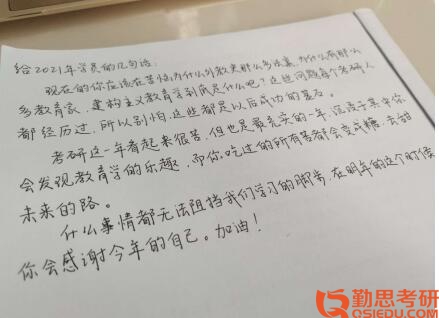 给2021年学员的几句话:
现在的你应该在苦恼为什么外教史那么多法案,为什么有那么
多教育家,建构主义教育学到底是什么吧?这些问题每个考研人
都经历过,所以别怕,这些都是以后成功的基石。
考研这一年看起来很苦,但也是最充实的一年,沉浸于其中你
会发现教育学的乐趣,而你吃过的所有苦都会变成糖,去甜
未来的路。
什么事情都无法阻挡我们学习的脚步,在明年的这个时候
你会感谢今年的自己。加油!
勤思考研
QSIEDU.COM